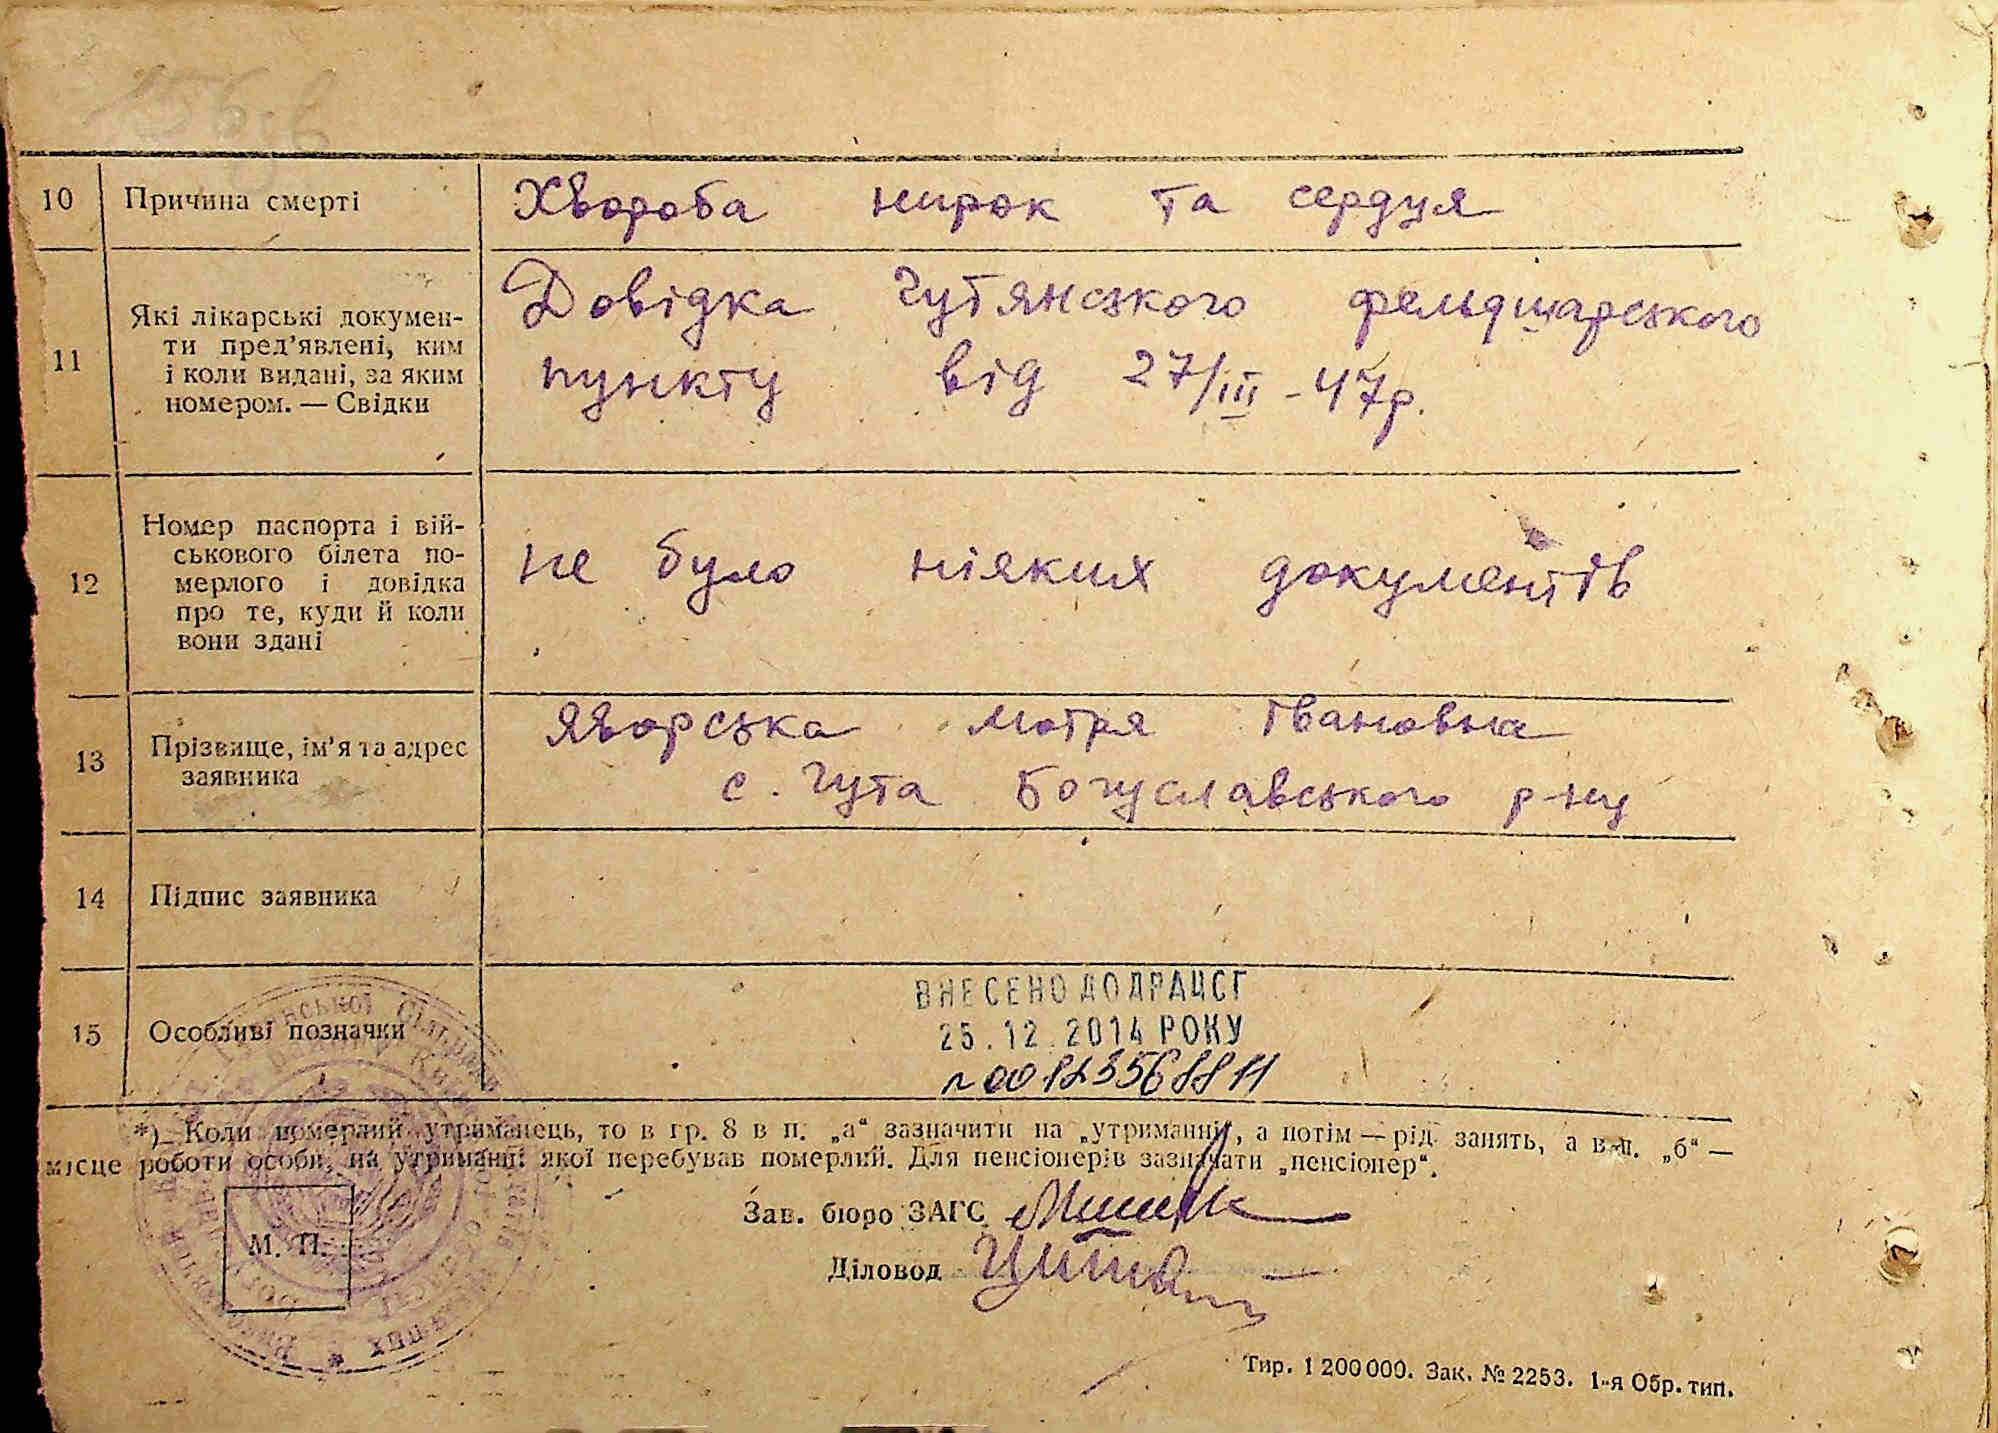 10 Причина смерті Хвороба нирок та сердця
11 Які лікарські докумен-
ти пред'явлені, ким
і коли видані, за яким
номером. — Свідки
Довідка Гутянського фельдшарського
пункту від 27/III - 47р.
12 Номер паспорта і вій-
ськового білета по-
мерлого і довідка
про те, куди й коли
вони здані
не було ніяких документів
13 Прізвище, ім'я та адрес
заявника
Яворська Мотря Івановна
с. Гута Богуславського р-ну
14 Підпис заявника
15 Особливі позначки
ВНЕСЕНО ДО ДРАЦСГ
25.12.2014 РОКУ
*) Коли померлий утриманець, то в гр. 8 в п. „а“ зазначити на „утриманні“, а потім — рід занять, а в п. „б“ —
місце роботи особи, на утриманні якої перебував померлий. Для пенсіонерів зазначати „пенсіонер“.
Зав. бюро ЗАГС
Діловод
М. П.
Тир. 1 200 000. Зак. № 2253. 1-я Обр. тип.